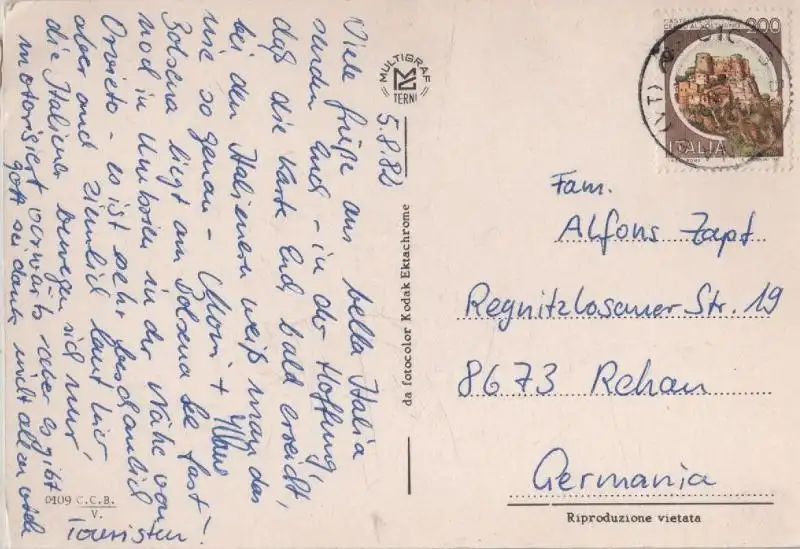 Viele Grüße aus bella Italia
senden Euch - in der Hoffnung,
daß die Karte Euch bald erreicht,
bei den Italienern weiß man das
nie so genau - Moni +
Bolsena liegt am Bolsena See fast
noch in Umbrien in der Nähe von
Orvieto - es ist sehr beschaulich
aber auch ziemlich laut hier
die Italiener bewegen sich nur
motorisiert vorwärts aber es gibt
gott sei dank nicht allzu viele
Touristen!
5.8.82
MULTIGRAF
TERNI
da fotocolor Kodak Ektachrome
0109 C.C.B.
V.
200
ITALIA
(VT)
Fam.
Alfons Zapf
Regnitzlosauer Str. 19
8673 Rehau
Germania
Riproduzione vietata